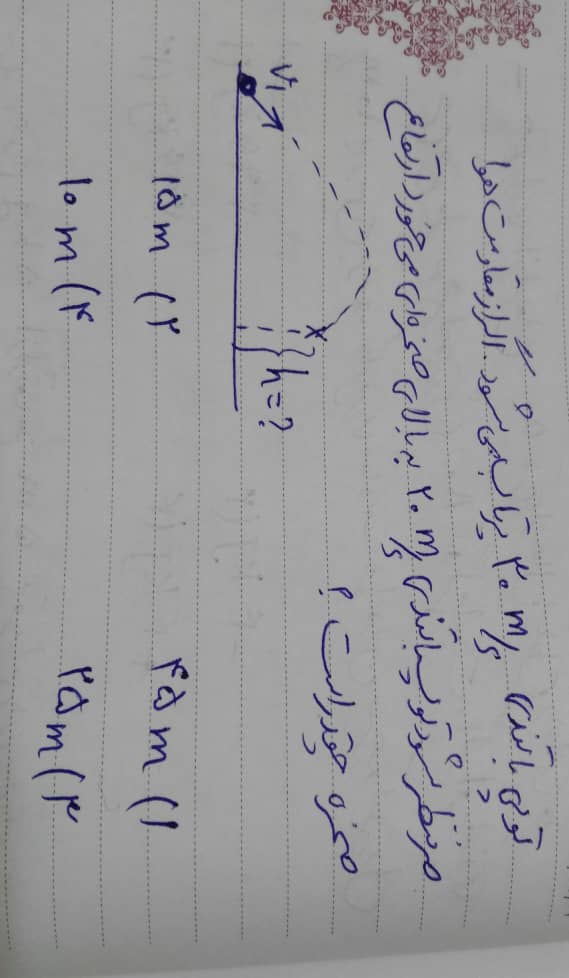 توپی با تندی ۳۰ m/s پرتاب می‌شود. اگر از مقاومت هوا
صرفنظر شود توپ با تندی ۲۰ m/s به بالای صخره‌ای می‌خورد ارتفاع
صخره چقدر است ؟
V1
h=?
۱) ۴۵ m
۲) ۱۵ m
۳) ۲۵ m
۴) ۱۰ m